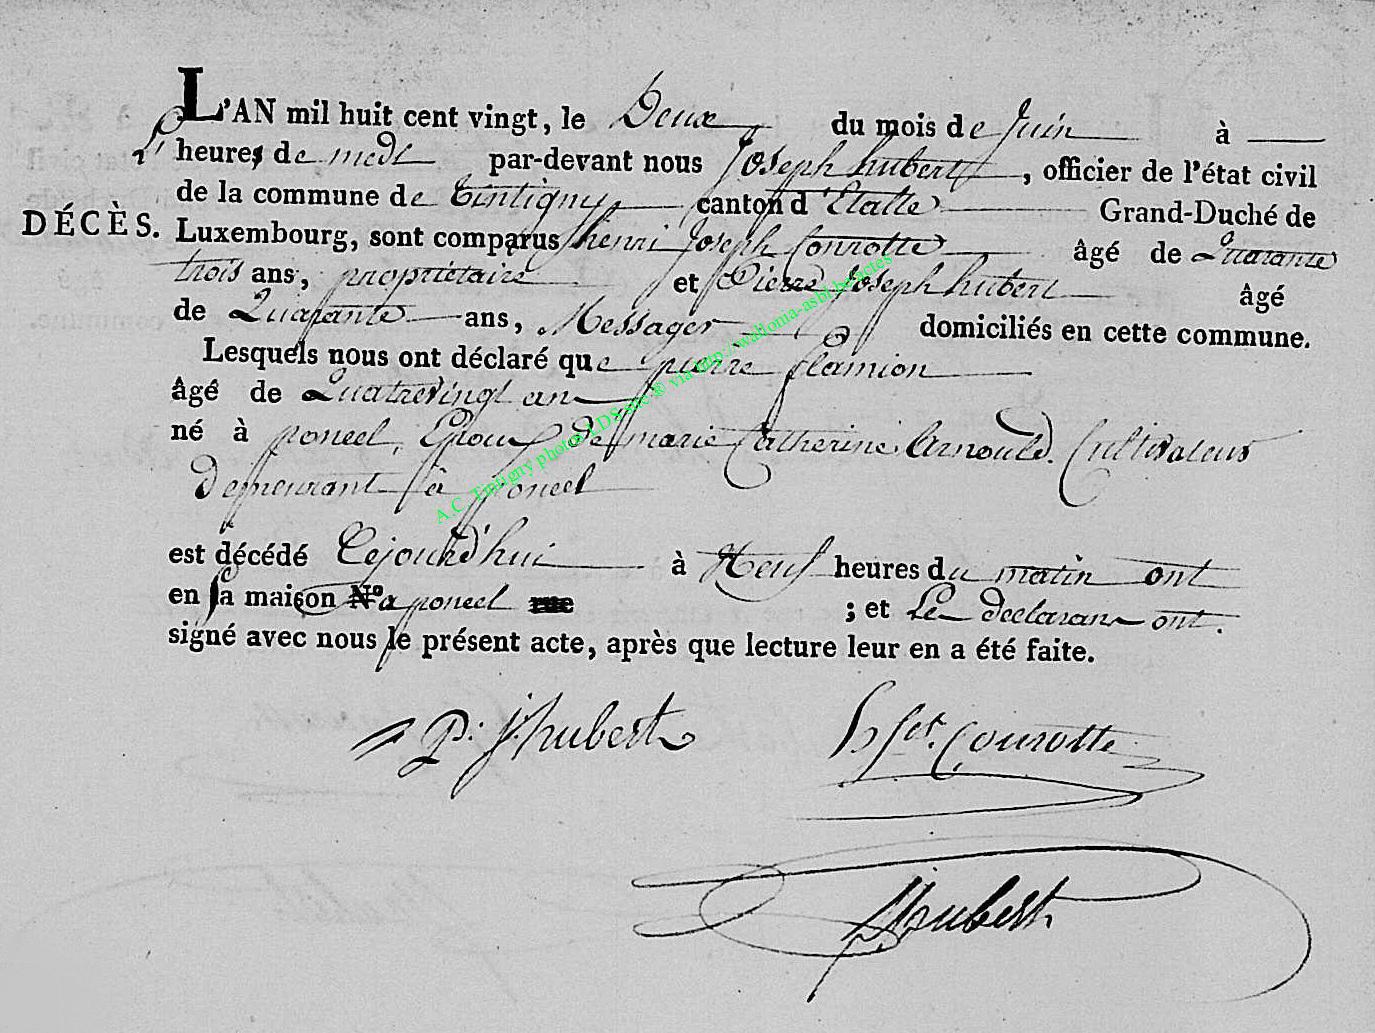 L'AN mil huit cent vingt, le Deux du mois de Juin à
L' heures de medi par-devant nous Joseph hubert, officier de l'état civil
de la commune de Tintigny canton d'Etalle Grand-Duché de
DÉCÈS.
Luxembourg, sont comparus henri Joseph Conrotte âgé de Quarante
trois ans, propriétaire et Pierre Joseph hubert âgé
de Quarante ans, Messager domiciliés en cette commune.
Lesquels nous ont déclaré que pierre flamion
âgé de Quatrevingt an
né à poncel, Epoux de marie Catherine Arnould. Cultivateur
Demeurant à poncel
est décédé Cejourd'hui à Neuf heures du matin ont
en sa maison N.º a poncel rue ; et Le declarans ont.
signé avec nous le présent acte, après que lecture leur en a été faite.
P. j. hubert
h Jph. Conrotte
J hubert
A.C. Tintigny photos LDS sur ® via http://wallonia-asbl.be/actes